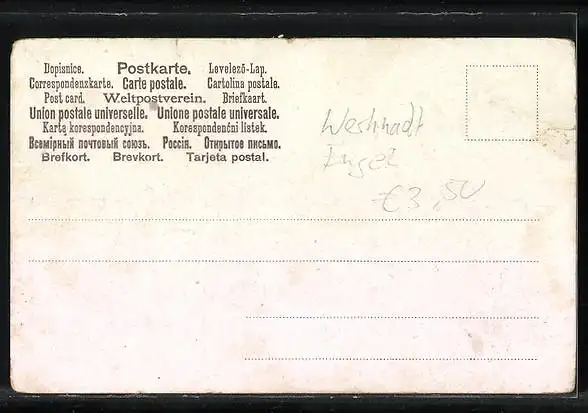 Dopisnice. Postkarte. Levelező-Lap.
Correspondenzkarte. Carte postale. Cartolina postale.
Post card. Weltpostverein. Briefkaart.
Union postale universelle. Unione postale universale.
Kartą korespondencyjna. Korespondenční lístek.
Всемірный почтовый союзъ. Россія. Открытое письмо.
Brefkort. Brevkort. Tarjeta postal.
Engel
€3,50